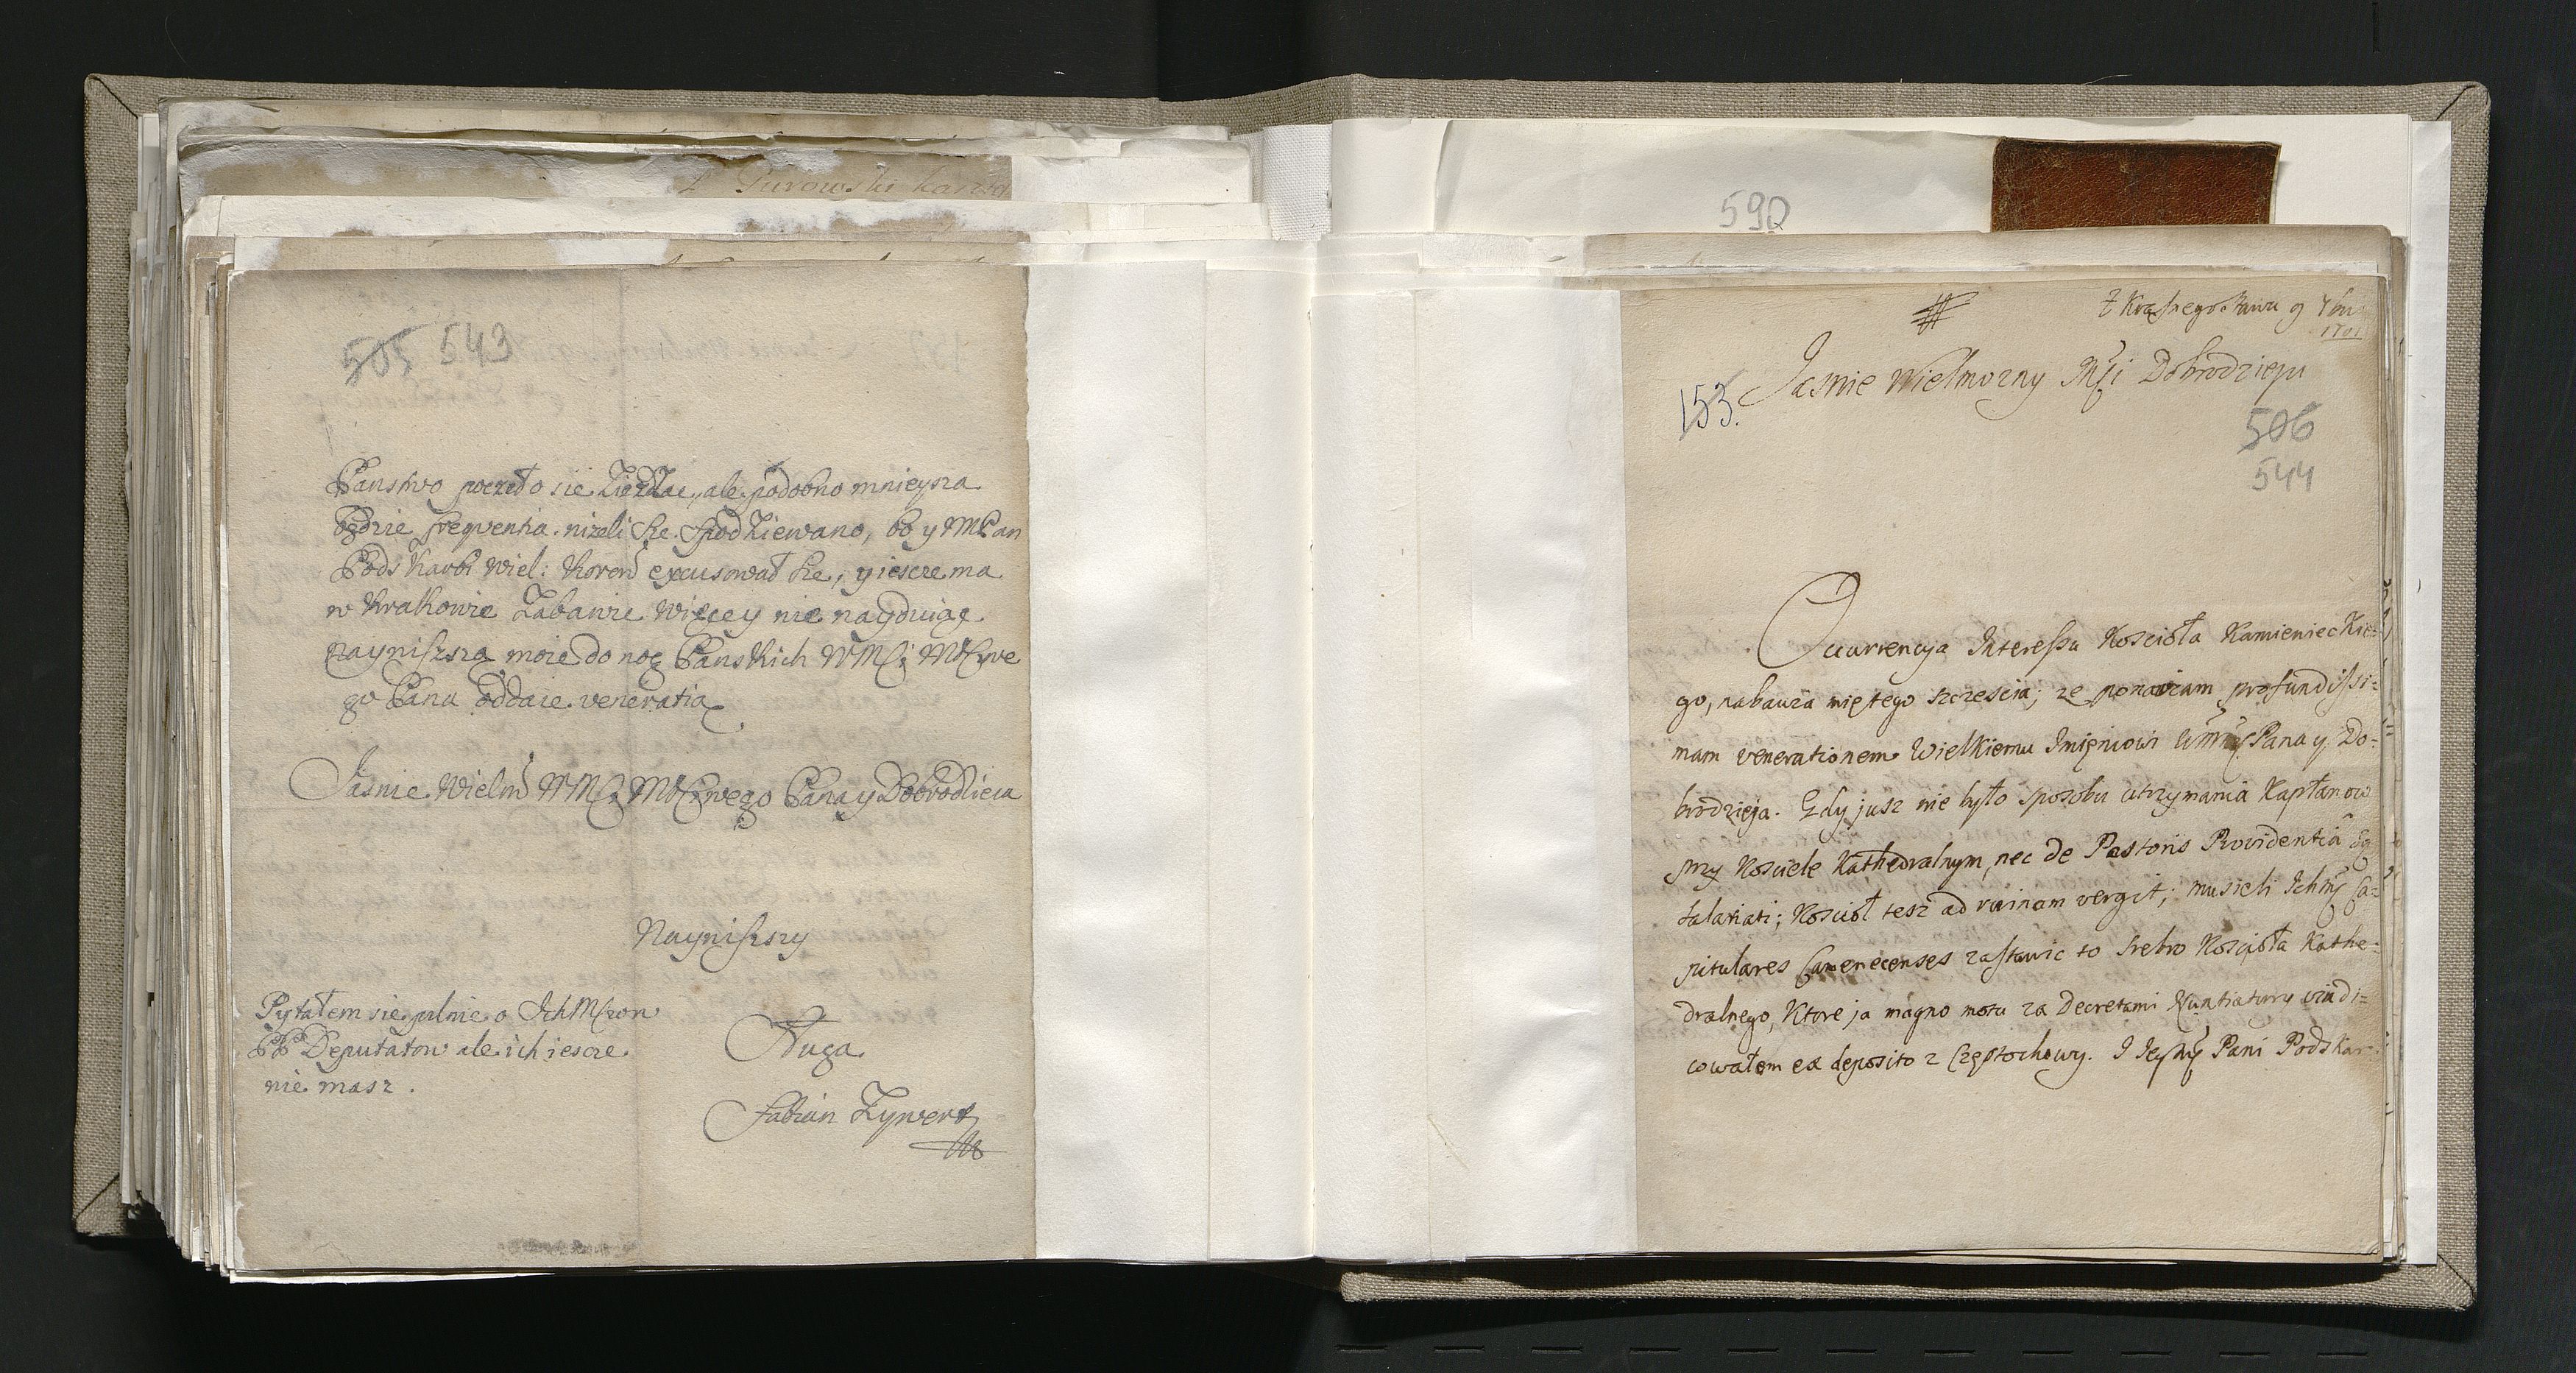 Purowski
590
505 543
Panstwo poczęło się ziezdzac, ale podobno mnieysza
będzie freqventia nizeli sie spodziewano, bo y MPan
Podskarbi Wiel: Koron excusował sie, y iescze ma
w Krakowie Zabawie Więcey nie nayduiąc
nayniszszą moie do nog Panskich WMCi MCiwe
go Pana oddaie veneratią
Jasnie Wielm WMCi MCiwego Pana y Dobrodzieia
Nayniszszy
Sługa
Fabian Zywert
Pytałem się pilnie o IchMciow
PP Deputatow ale ich iescze
nie masz.
Z Krasnegostawu 9
1701
153.
Jasnie Wielmozny Mci Dobrodzieju
506
544
Occurrencyja Interessu Kosciola Kamieniecкie=
go, nabawia mię tego szczescia; ze ponawiam profundissi=
mam venerationem Wielkiemu Imieniowi Wmci Pana y Do=
brodzieja. Gdy jusz nie było sposobu utrzymania Kapłanow
przy Kosciele Kathedralnym, nec de Pastoris Providentia
salariati; Kosciół tesz ad ruinam vergit; musieli Ichmc Ca=
pitulares Camenecenses zastawic to srebro Kosciola Kathe=
dralnego, Ktore ja magno motu za Decretami Nuntiatury vindi=
cowałem ex deposito z Częstochowy. I Jeymc Pani Podskar